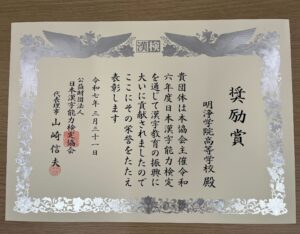 漢検
奨励賞
明浄学院高等学校 殿
貴団体は本協会主催令和
六年度日本漢字能力検定
を通して漢字教育の振興に
大いに貢献されましたので
ここにその栄誉をたたえ
表彰します
令和七年三月三十一日
公益財団法人
日本漢字能力検定協会
代表理事 山崎信夫